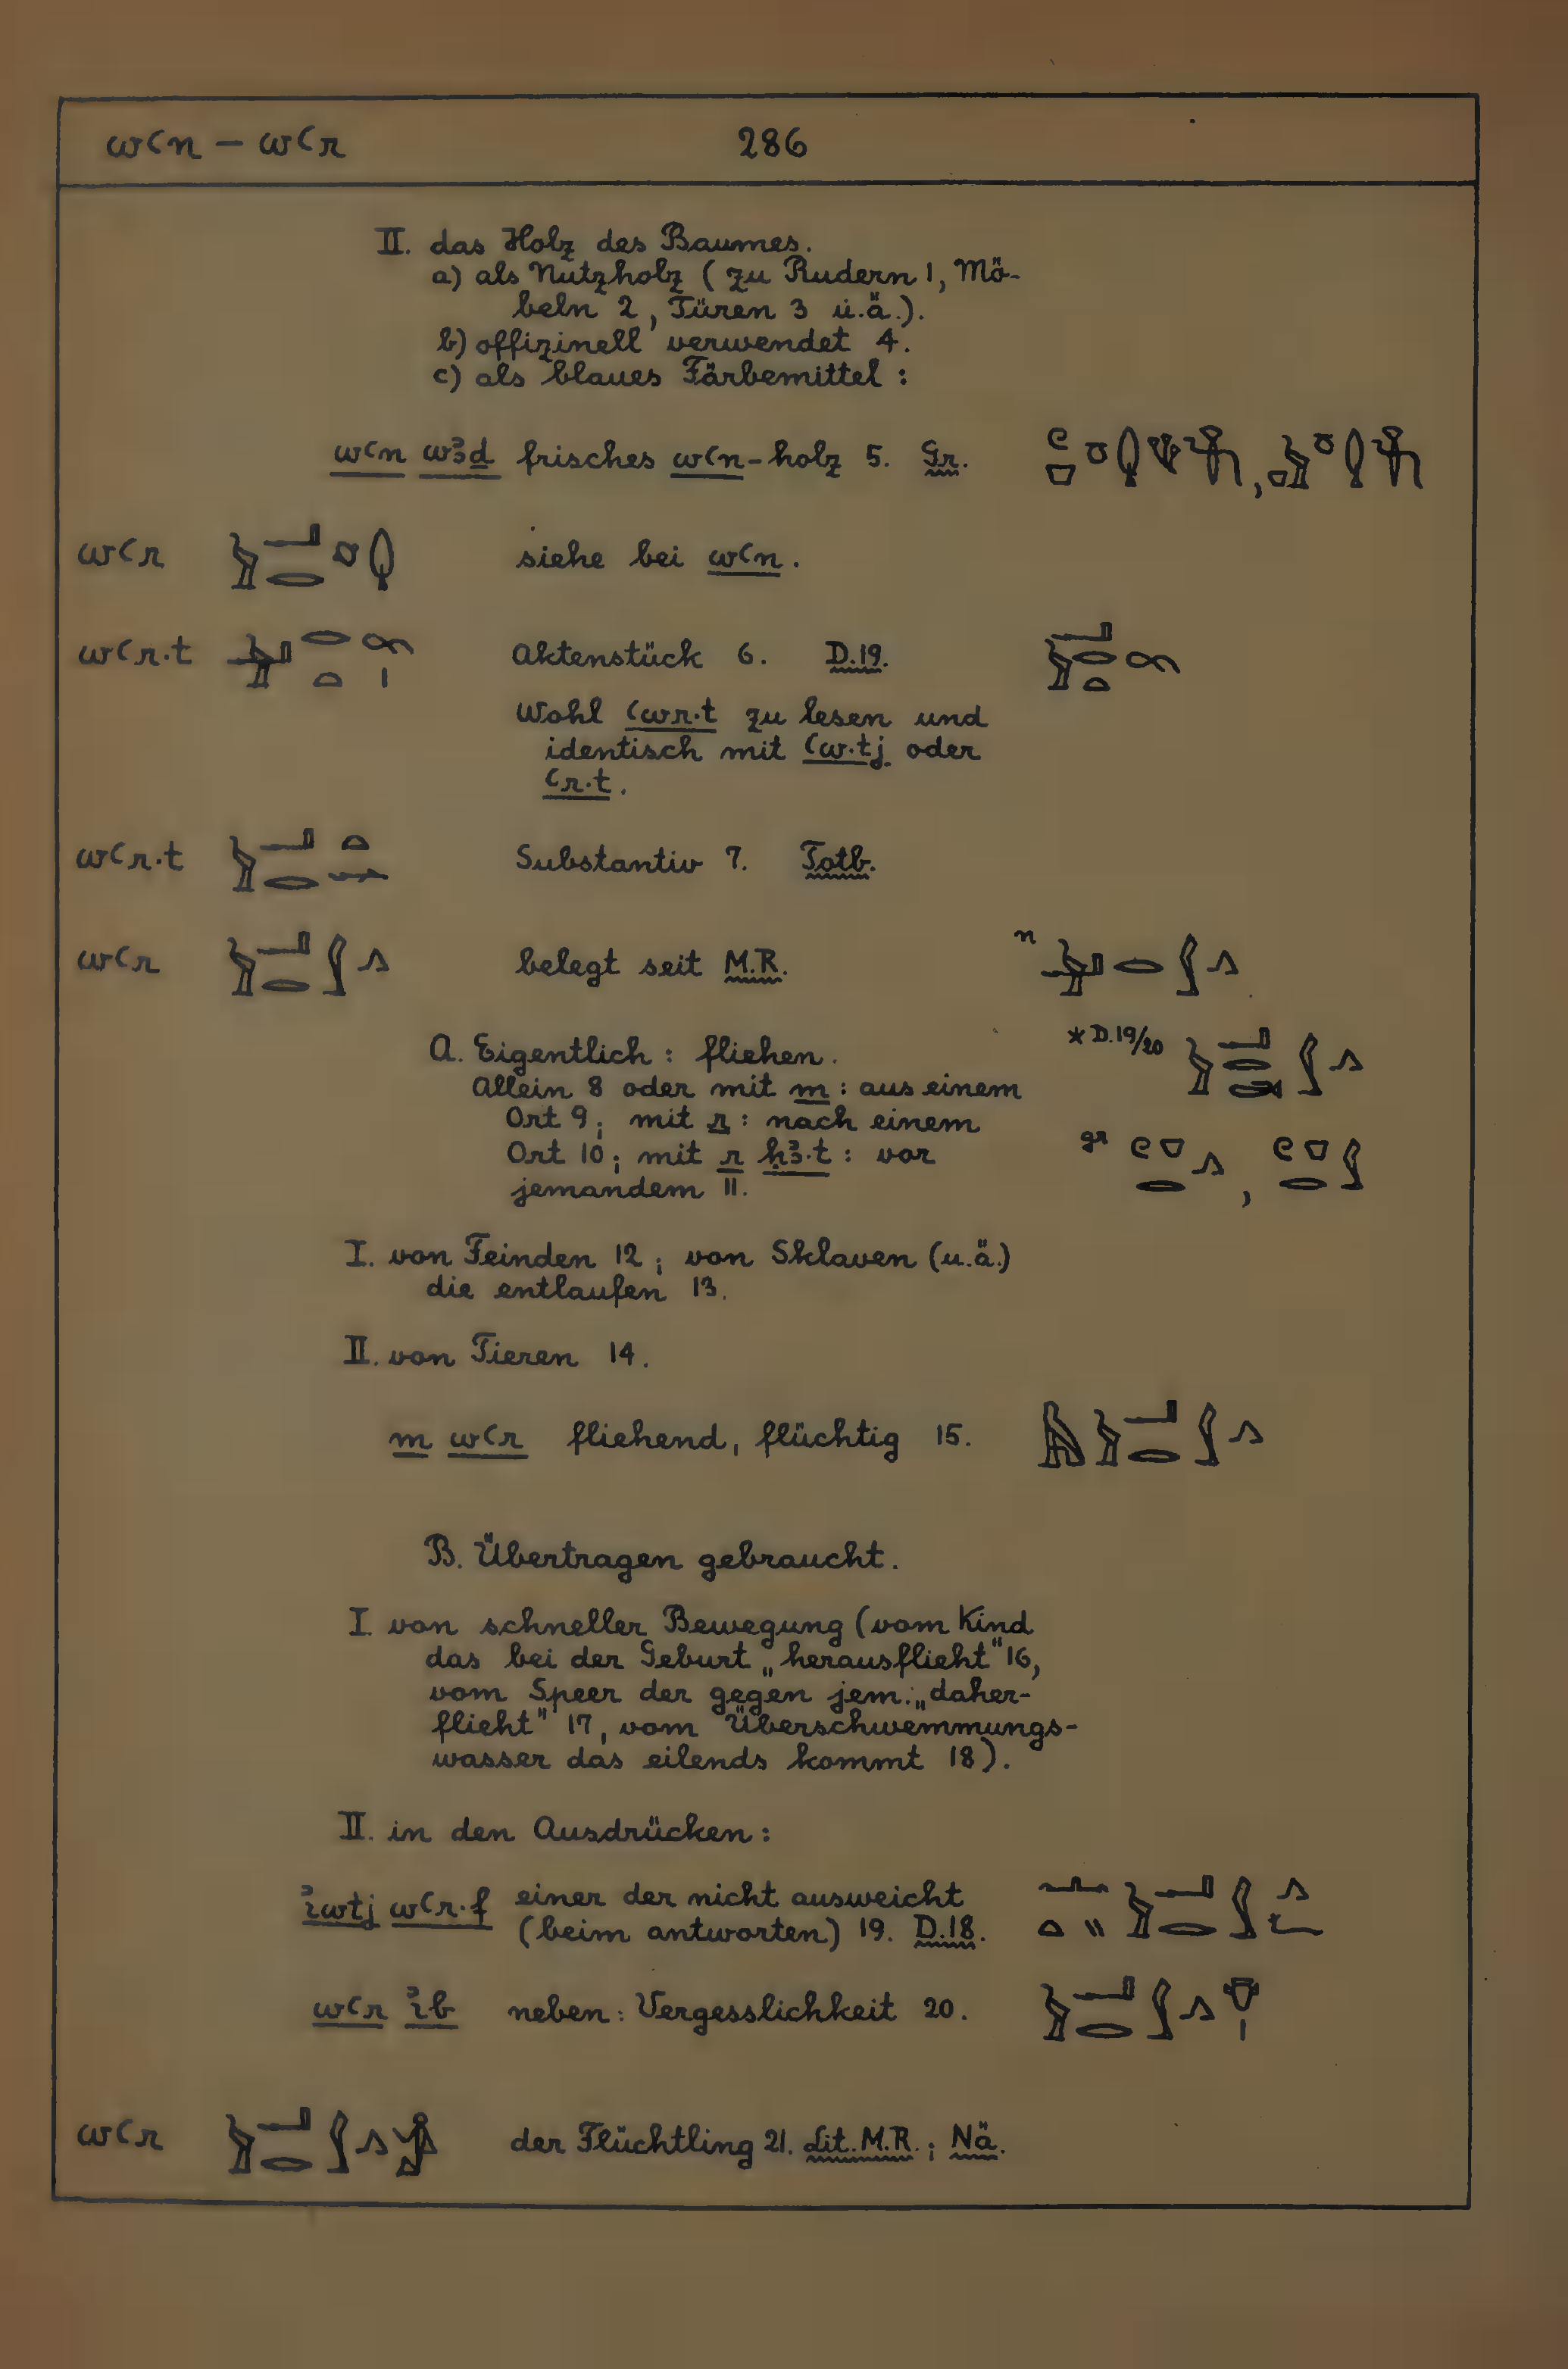 wꜥn – wꜥr 286
II. das Holz des Baumes.
a) als Nutzholz (zu Rudern 1, Mö-
beln 2, Türen 3 u.ä.).
b) offizinell verwendet 4.
c) als blaues Färbemittel:
wꜥn wꜣḏ frisches wꜥn-holz 5. Gr.
wꜥr siehe bei wꜥn.
wꜥr.t Aktenstück 6. D.19.
Wohl ꜥwr.t zu lesen und
identisch mit ꜥw.tj oder
ꜥr.t.
wꜥr.t Substantiv 7. Totb.
wꜥr belegt seit M.R. n
A. Eigentlich: fliehen. * D.19/20
Allein 8 oder mit m: aus einem
Ort 9; mit r: nach einem
Ort 10; mit r ḥꜣ.t: vor gr
jemandem 11.
I. von Feinden 12; von Sklaven (u.ä.)
die entlaufen 13.
II. von Tieren 14.
m wꜥr fliehend, flüchtig 15.
B. Übertragen gebraucht.
I. von schneller Bewegung (vom Kind
das bei der Geburt „herausflieht" 16,
vom Speer der gegen jem. „daher-
flieht" 17, vom Überschwemmungs-
wasser das eilends kommt 18).
II. in den Ausdrücken:
iwtj wꜥr.f einer der nicht ausweicht
(beim antworten) 19. D.18.
wꜥr ib neben: Vergesslichkeit 20.
wꜥr der Flüchtling 21. Lit. M.R.; Nä.